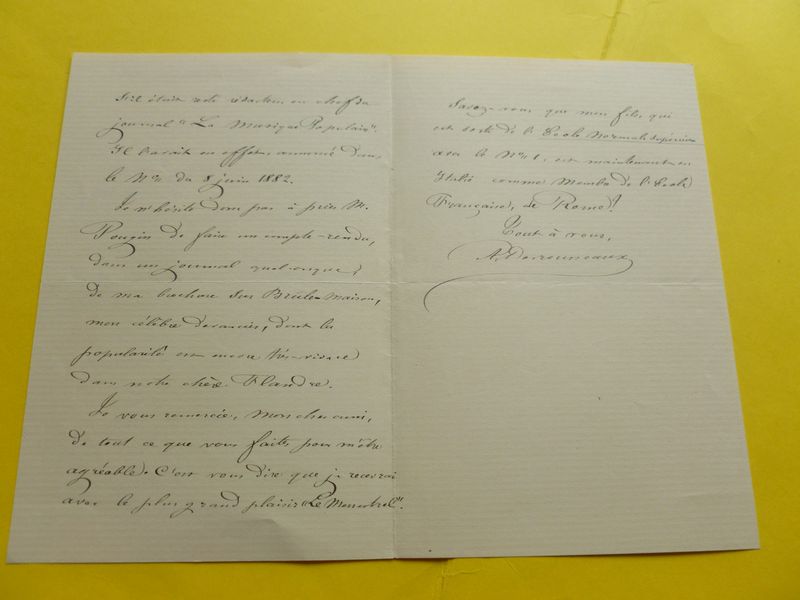 s'il était resté rédacteur en chef du
journal "La Musique Populaire".
Il l'avait en effet, annoncé dans
le No du 8 juin 1882.
Je n'hésite donc pas à prier M.
Pougin de faire un compte-rendu,
dans un journal quelconque,
de ma brochure sur Brûle-Maison,
mon célèbre devancier, dont la
popularité est encore très-vivace
dans notre chère Flandre.
Je vous remercie, mon cher ami,
de tout ce que vous faites pour m'être
agréable. C'est vous dire que je recevrai
avec le plus grand plaisir "Le Ménestrel".
Savez-vous que mon fils, qui
est sorti de l'Ecole Normale Supérieure
avec le No 1, est maintenant en
Italie comme Membre de l'Ecole
Française, de Rome!
Tout à vous,
A. Desrousseaux